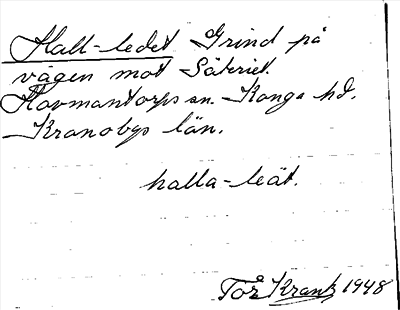 Hall-ledet Grind på
vägen mot Säteriet.
Hovmantorps sn. Konga hd.
Kronobgs län.
halla-leät.
Tor Krantz 1948